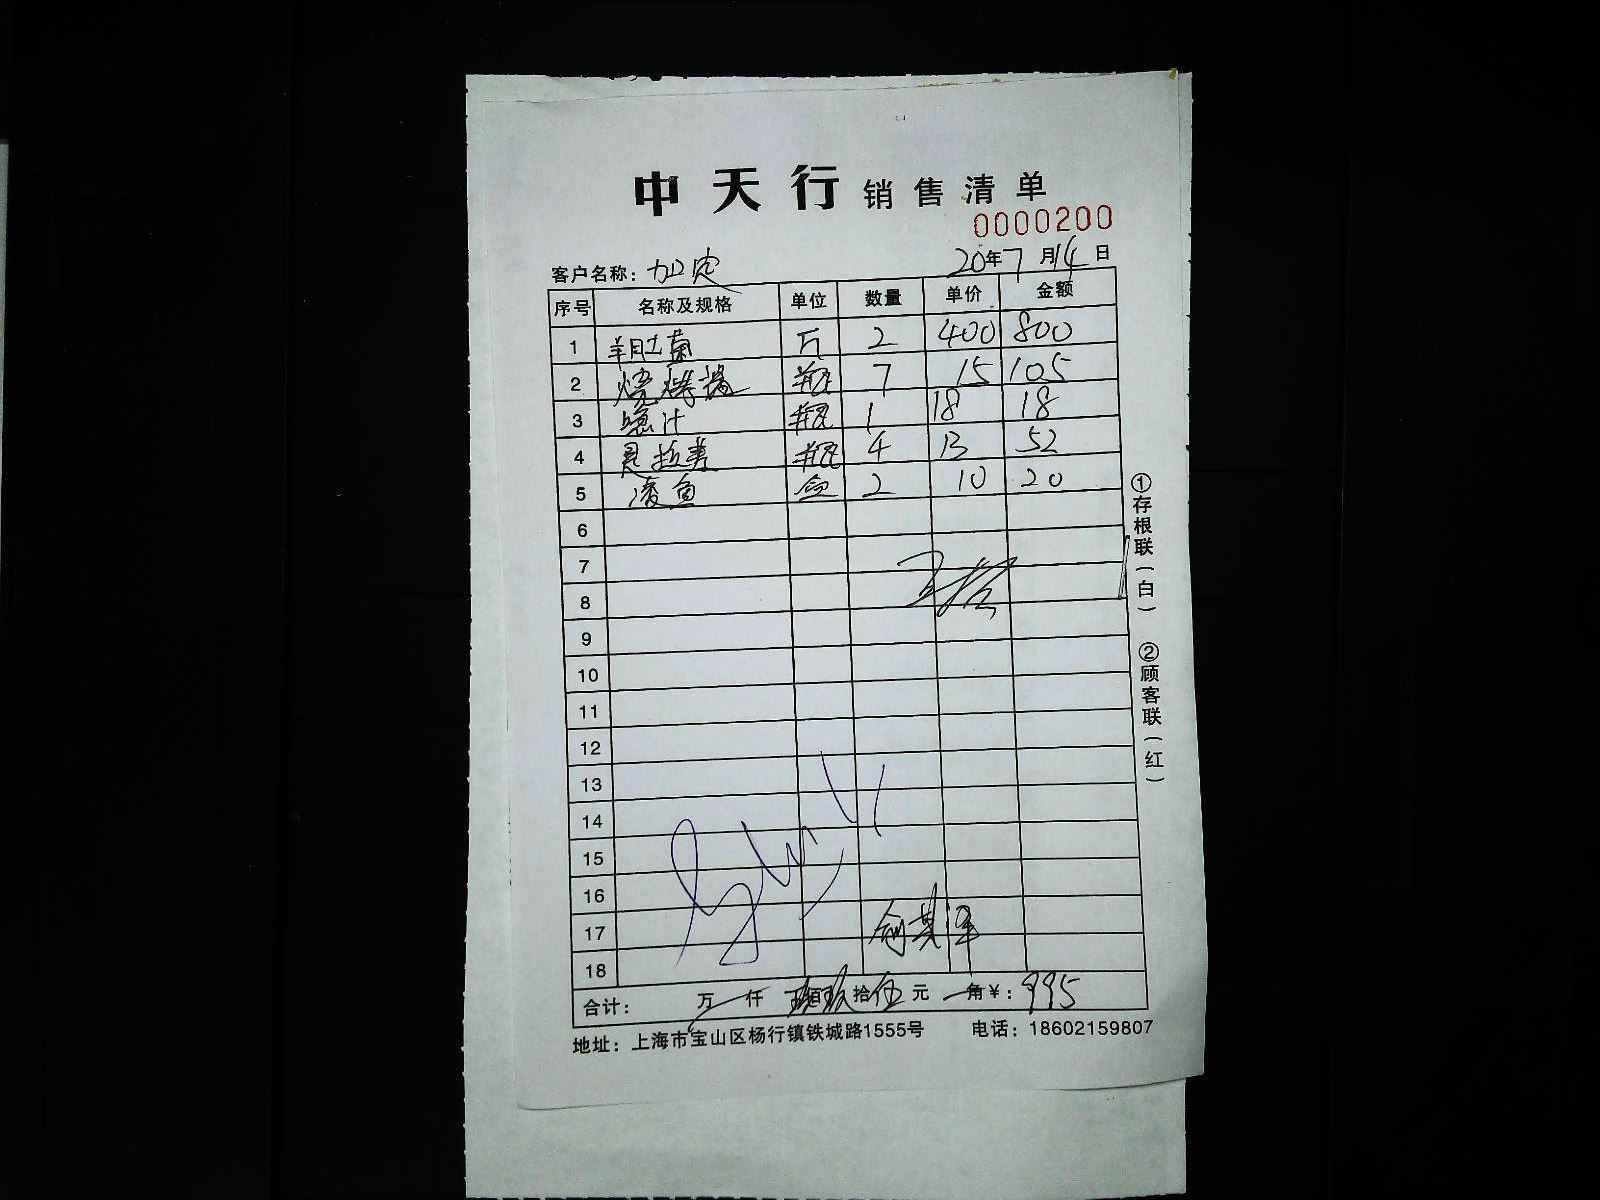 中天行 销售清单
0000200
客户名称: 加定 20年7月14日
序号 名称及规格 单位 数量 单价 金额
1 羊肚菌 斤 2 400 800
2 烧烤 瓶 7 15 105
3 汁 瓶 1 18 18
4 瓶 4 13 52
5 凌鱼 盒 2 10 20
6
7
8
9
10
11
12
13
14
15
16
17
18
合计: 万 仟 玖佰玖拾伍元 角 ¥: 995
地址: 上海市宝山区杨行镇铁城路1555号 电话: 18602159807
①存根联(白) ②顾客联(红)